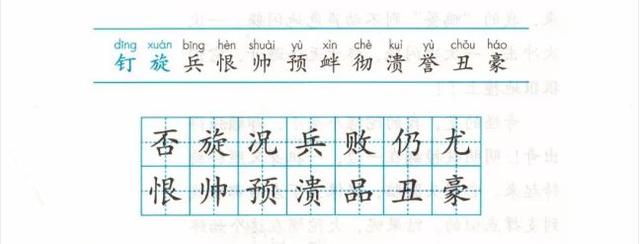 dīng xuán bīng hèn shuài yù xìn chè kuì yù chǒu háo
钉 旋 兵 恨 帅 预 衅 彻 溃 誉 丑 豪
否 旋 况 兵 败 仍 尤
恨 帅 预 溃 品 丑 豪